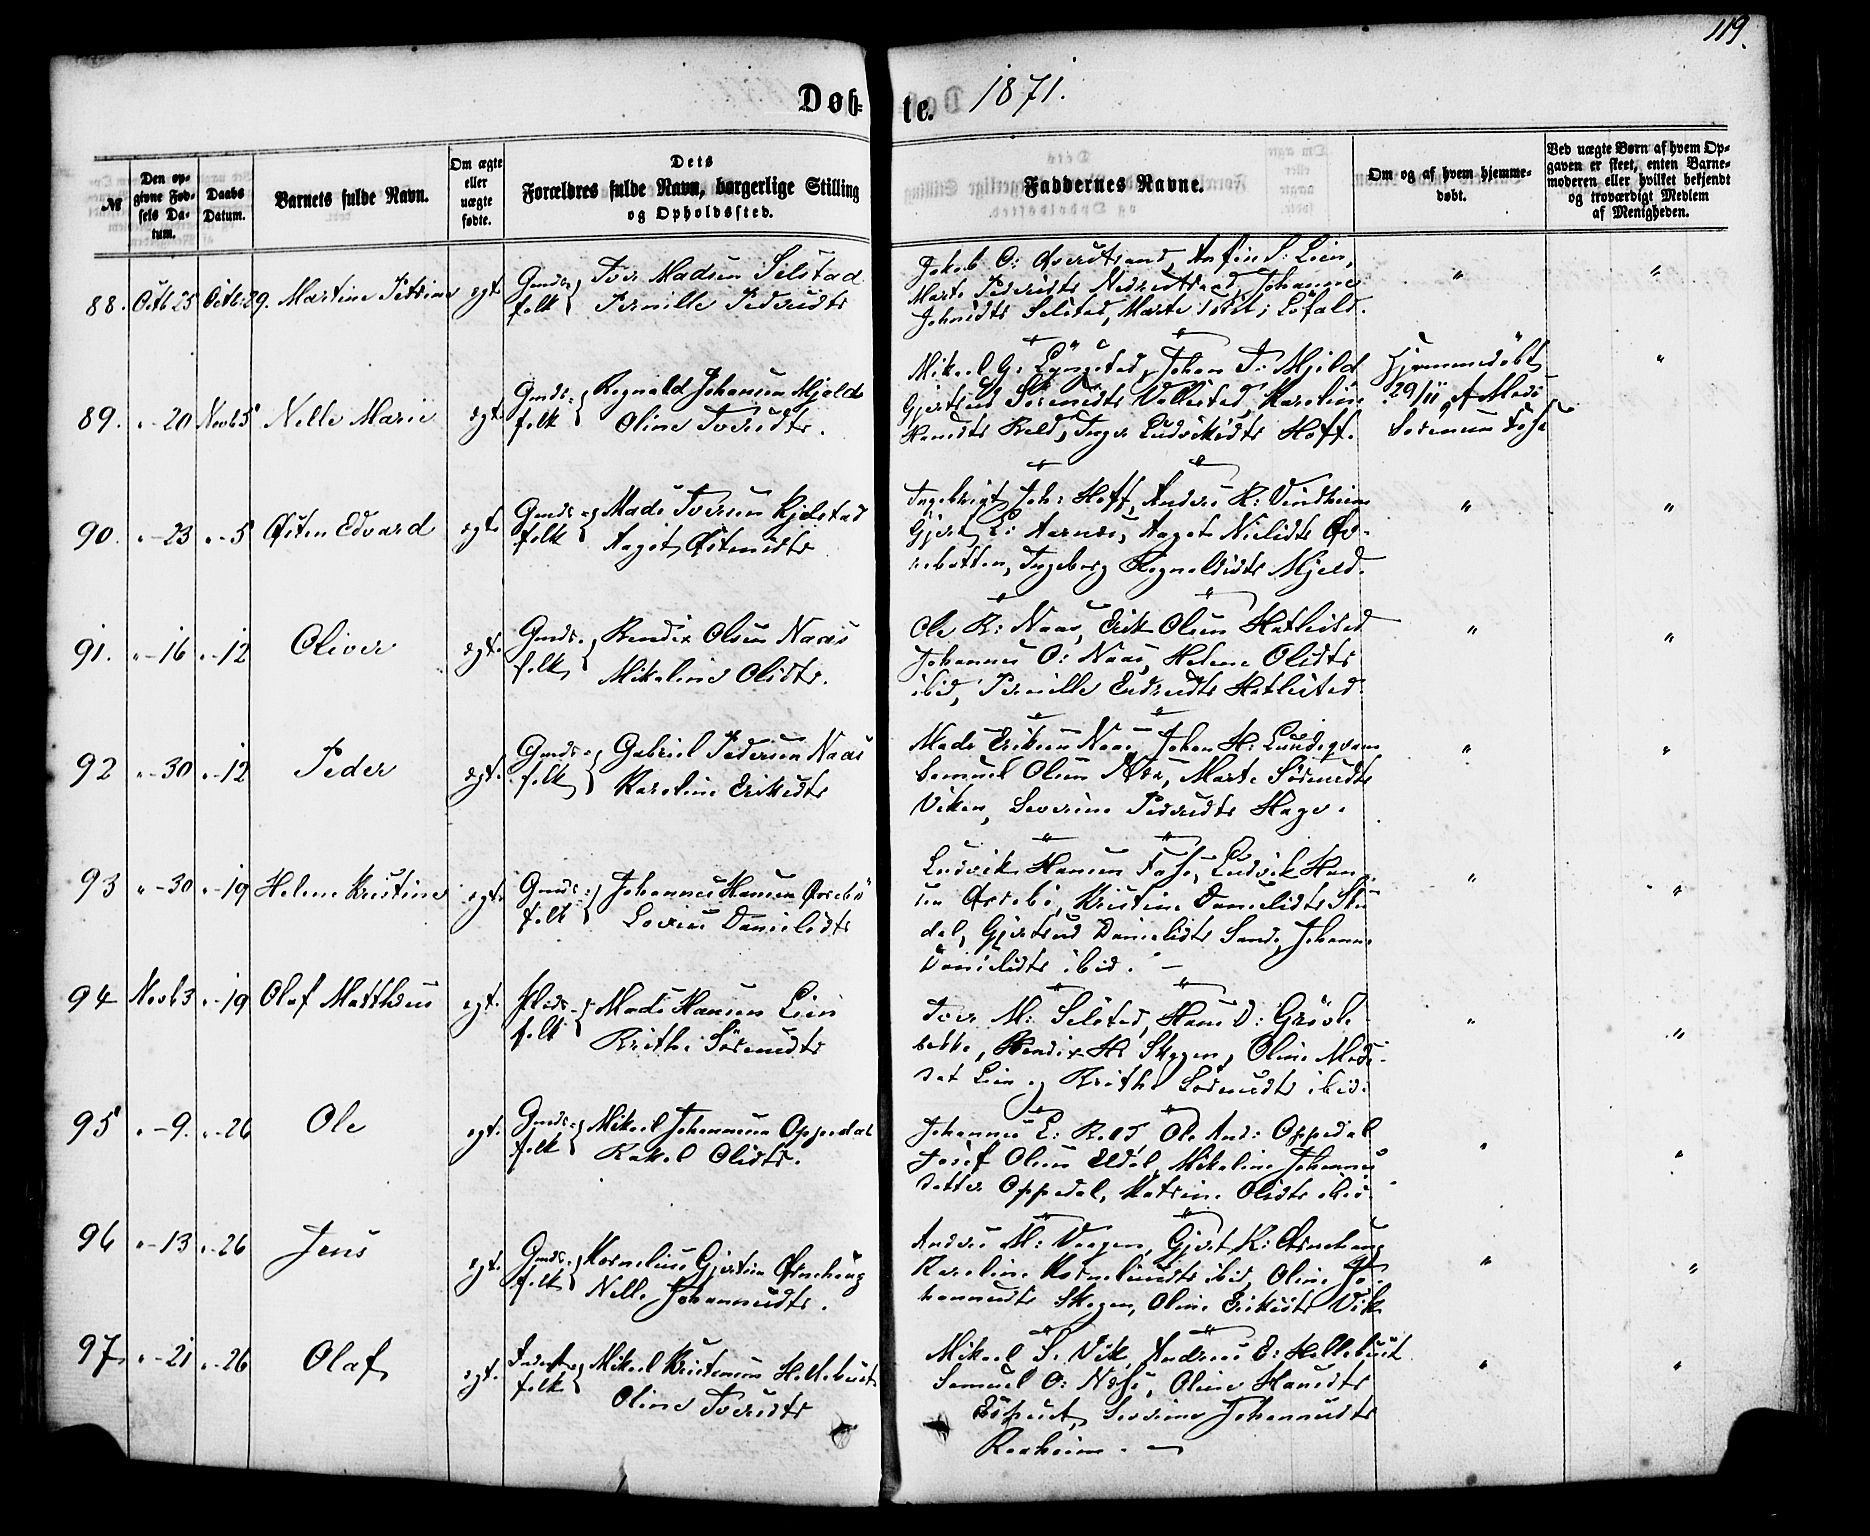 119.
Døb-te. 1871.
№
Den opgivne Fødsels Datum.
Daabs Datum.
Barnets fulde Navn.
Om ægte eller uægte fødte.
Dets Forældres fulde Navn, borgerlige Stilling og Opholdssted.
Faddernes Navne.
Om og af hvem hjemmedøbt.
Ved uægte Børn af hvem Opgaven er skeet, enten Barnemoderen eller hvilket bekjendt og troværdigt Medlem af Menigheden.
88. Octb 25 Octb: 29. Martine Petrine egt. Gmds: folk Iver Madsen Selstad
Pernille Pedersdtr
Jakob O: Lien,
Marte Pedersdtr Johanne
Johnsdtr Selstad, Marte
89. " - 20 Novb 5 Nelle Marie egt. Gmds: folk Rognald Johansen Mjelde
Oline Iversdtr.
Mikael G: Johan I: Mjeld
Gjertrud Sørensdtr Karoline
Hansdtr Reld, Inger Ludviksdtr Hoff.
Hjemmedøbt
29/11 af Mads
Sørensen Fosse
90. " - 23 " - 5 Østen Edvard egt. Gmds: folk Mads Iversen Kjelstad
Aagot Østensdtr
Ingebrigt Joh: Hoff, Anders K: Vindheim
Gjert L: Aarnæs, Aagot Nielsdtr Øv-
rebotten, Ingeborg Rognaldsdtr Mjeld.
91. " - 16 " - 12 Oliver egt. Gmds: folk Bendix Olsen Naas
Mikaline Olsdtr.
Ole B: Naas, Erik Olsen Hatlestad
Johannes O: Naas, Helene Olsdtr
ibid, Pernille Endresdtr Hatlestad.
92 " - 30 " - 12 Peder egt. Gmds: folk Gabriel Pedersen Naas
Karoline Eriksdtr
Mads Eriksen Naas, Johan H:
Samuel Olsen Marte Sørensdtr
Viken, Severine Pedersdtr Hage.
93 " - 30 " - 19 Helene Kristine egt. Gmds: folk Johannes Hansen
Lovise Danielsdtr
Ludvik Hansen Fosse, Ludvik Han-
sen Kristine Danielsdtr
dal, Gjertrud Danielsdtr Sande, Johanne
Danielsdtr ibid.
94 Novb 3 " - 19 Olaf Matthæus egt. folk Mads Hansen Lien
Brithe Sørensdtr
Iver M: Selstad, Hans D:
bække, Bendix H: Skogen, Oline Mads-
dat Lien og Brithe Sørensdtr ibid.
95 " - 9. " - 26 Ole egt. Gmds: folk Mikael Johannesen Oppedal
Rakel Olsdtr.
Johannes E: Ole And: Oppedal
Josef Olsen Eldal, Mikaline Johannes
datter Oppedal, Katrine Olsdtr ibid.
96 " - 13 " - 26 Jens egt. Gmds: folk Kornelius Gjertsen Ørnehaug
Nelle Johannesdtr.
Andreas M: Vaagen, Gjert K: Ørnehaug
Karoline Korneliusdtr ibid, Oline Jo-
hannesdtr Skogen, Oline Eriksdtr Vik
97 " - 21 " - 26 Olaf egt. folk Mikael Kristensen Hellebust
Oline Iversdtr
Mikael S. Vik, Andreas E: Hellebust
Samuel O: Oline Hansdtr
Severine Johannesdtr